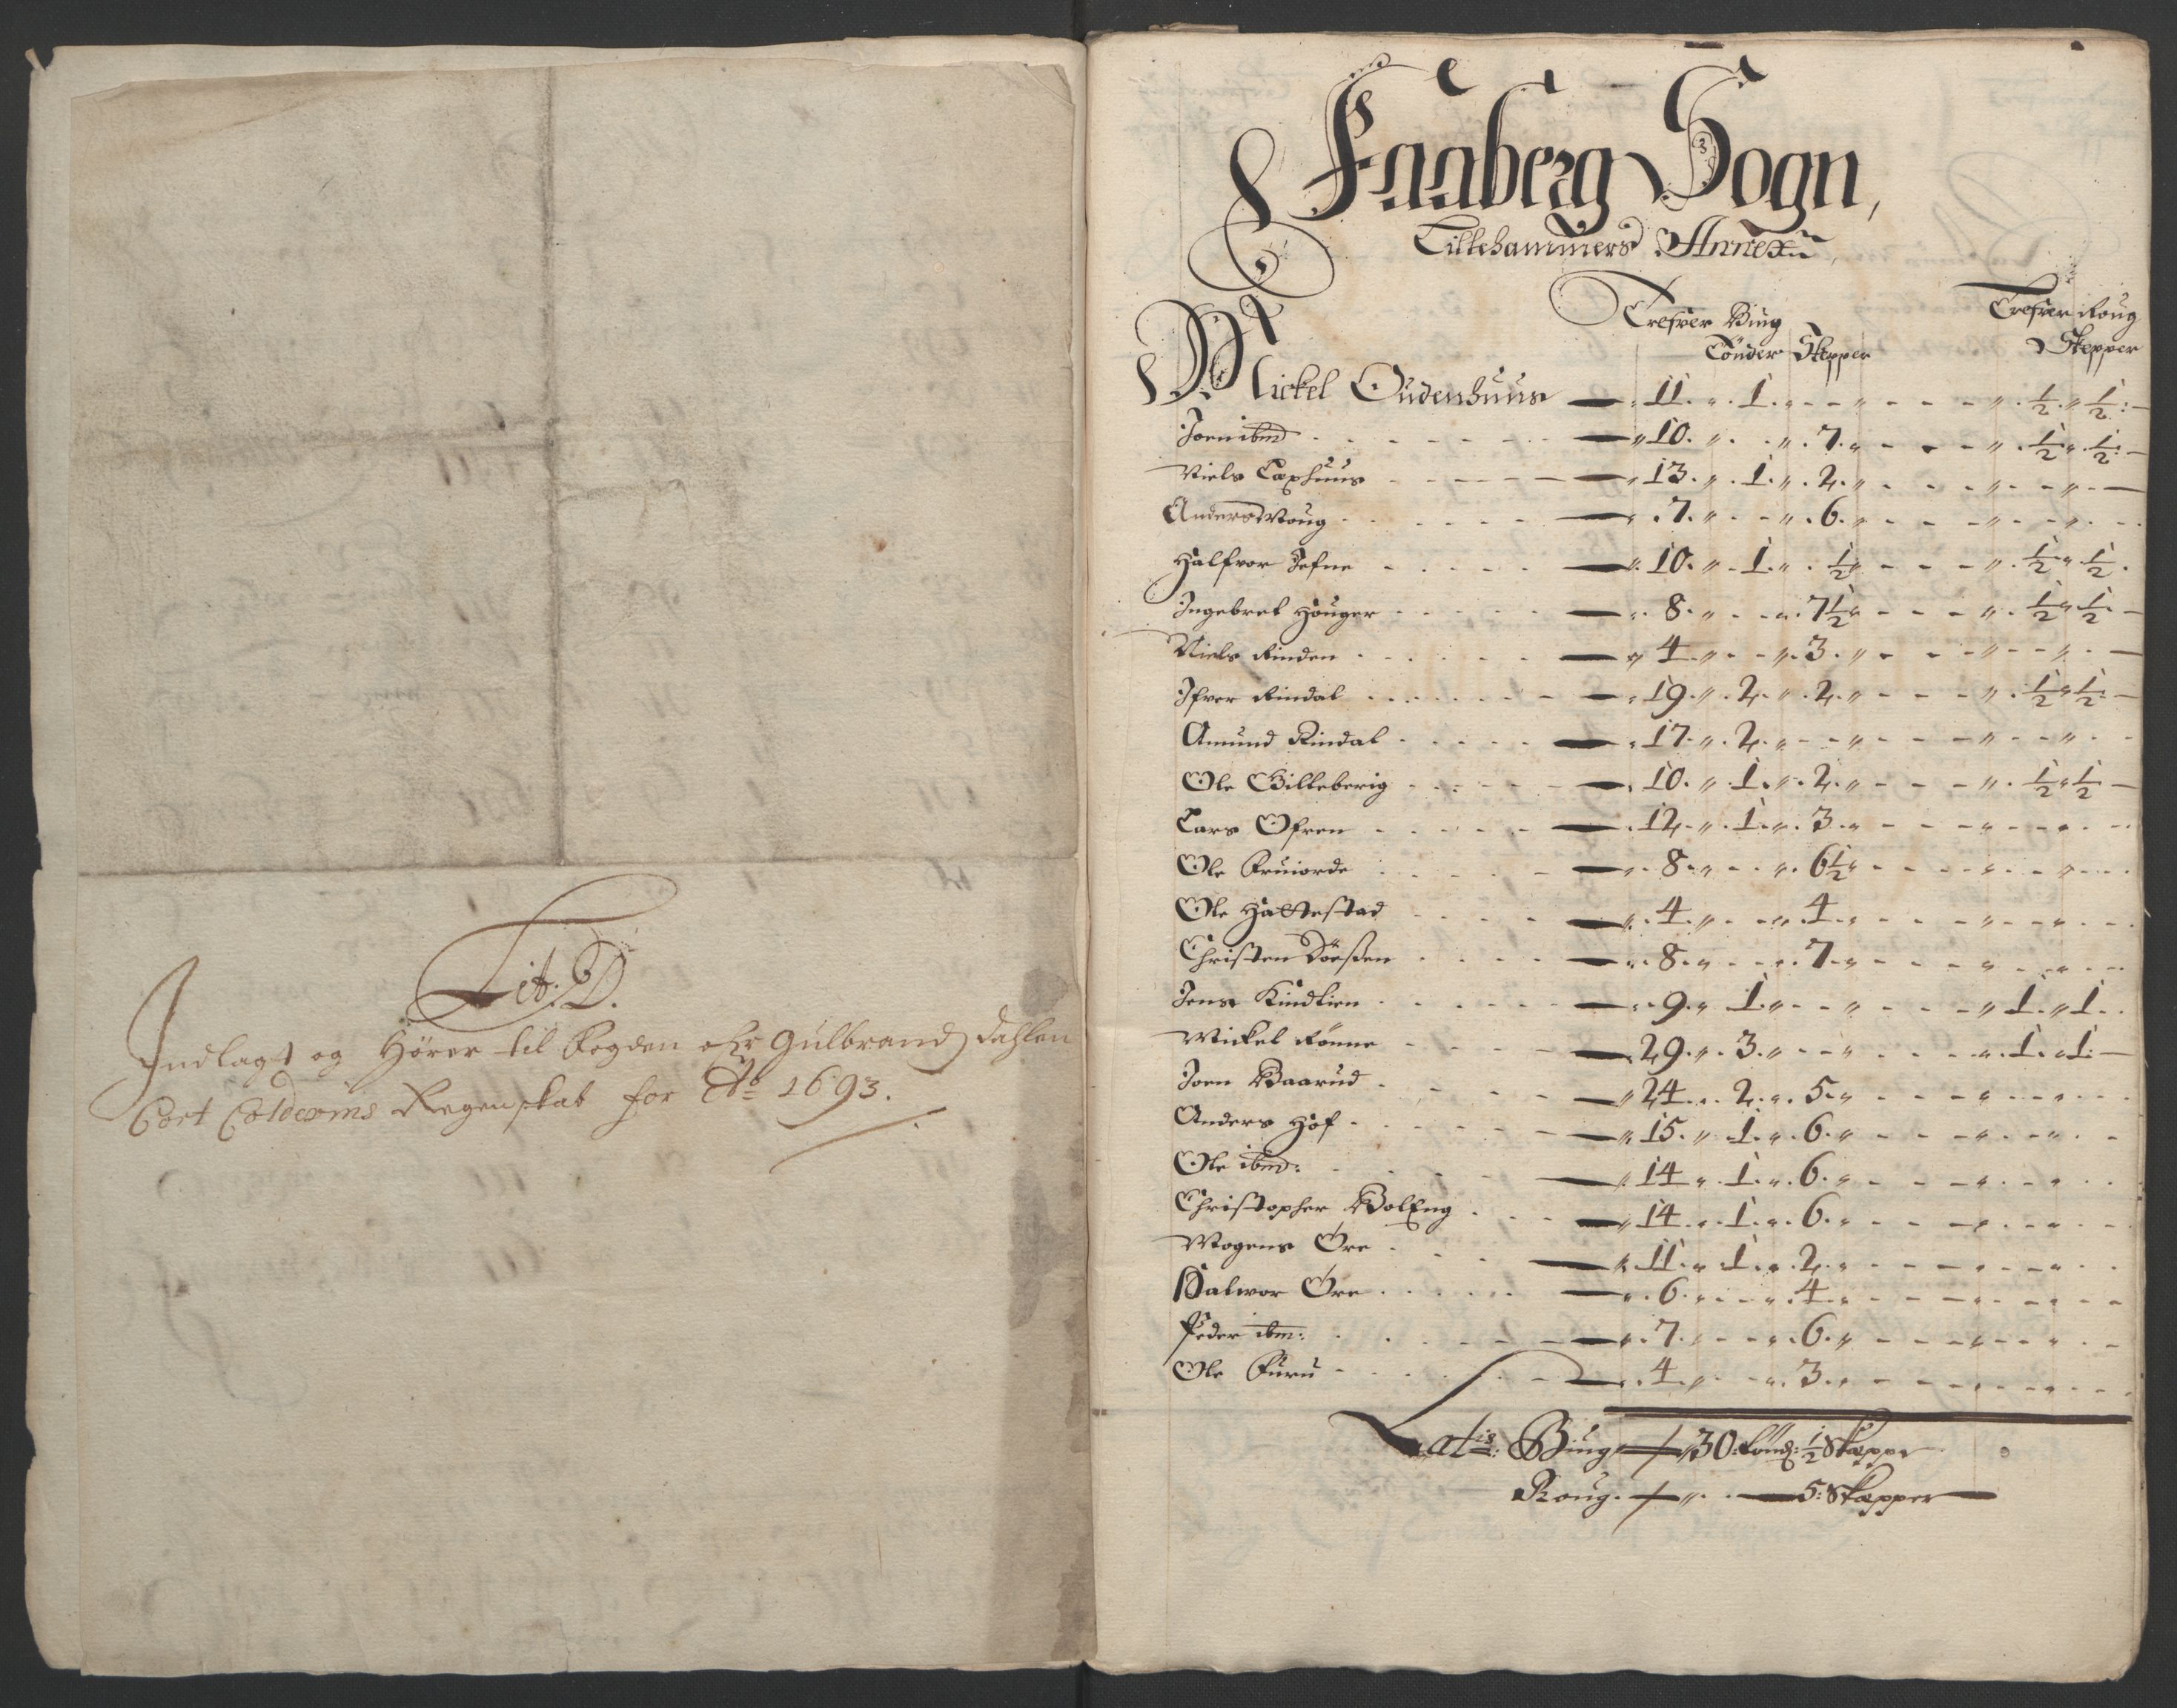 Lit: D.
Indlagt og Hörer til Fogden ofr Gulbrandsdahlen
Cort Coldevins Regenskab for Ao 1693.
Faaberg Sogn,
Lillehammers Annex
Trefver Biug Trefver Roug
Tönder Skepper Skepper
Mickel Oudenhuus 11. 1. ½ ½
Joen ibm 10. 7. ½ ½
Niels Laxhuus 13. 1. 2.
Anders Woug 7. 6.
Halfvor Jefne 10. 1. ½ ½ ½
Ingebret Houger 8. 7½ ½ ½
Niels Rinden 4. 3.
Ifver Rindal 19. 2. 2. ½ ½
Amund Rindal 17. 2.
Ole Gilleberig 10. 1. 2. ½ ½
Lars Ofren 12. 1. 3.
Ole 8. 6½
Ole Hattestad 4. 4.
Christen 8. 7.
Jens Kindlien 9. 1. 1. 1.
Mickel Rönne 29. 3. 1. 1.
Joen Baarud 24. 2. 5.
Anders Hof 15. 1. 6.
Ole ibm: 14. 1. 6.
Christopher BolEng 14. 1. 6.
Mogens Öre 11. 1. 2.
Halvor Öre 6. 4.
Peder ibm: 7. 6.
Ole Furu 4. 3.
Latis: Biug 30: Tönd: ½ Skepper
Roug. 5: Skepper